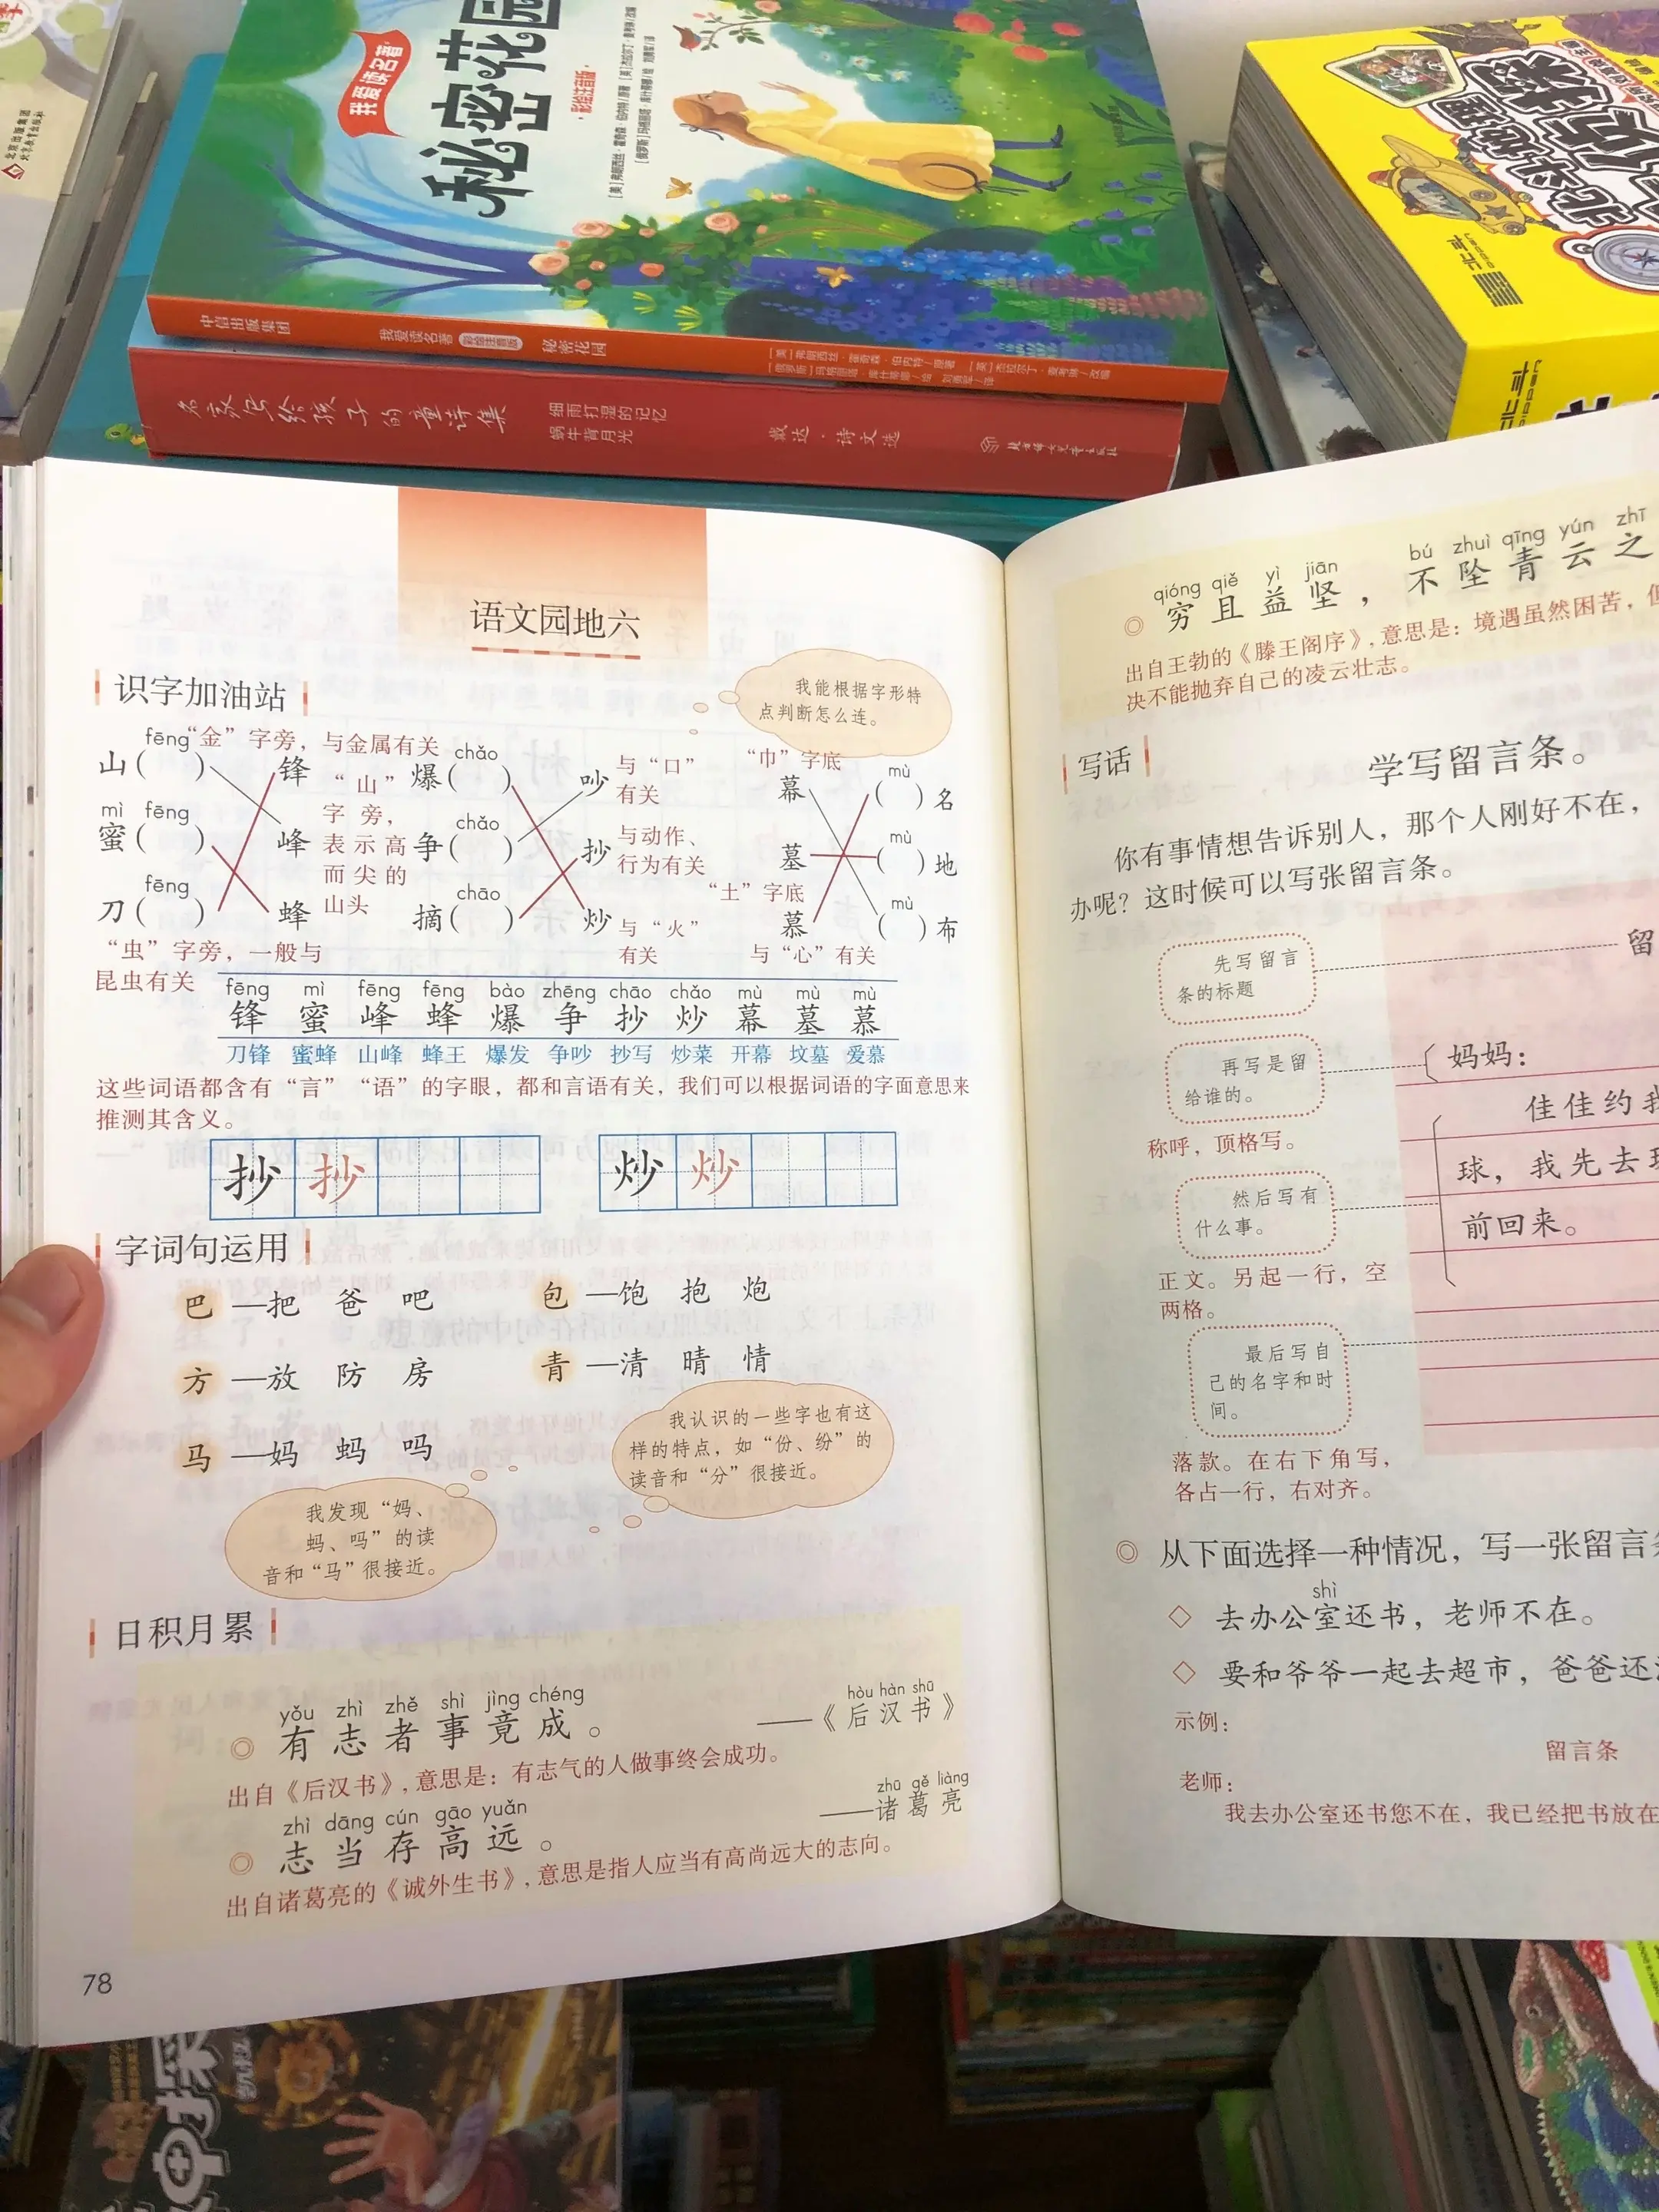 我爱读名著
秘密花园
·彩绘注音版·
中信出版集团
我爱读名著
彩绘注音版
秘密花园
名家写给孩子的童诗集
细雨打湿的记忆
蜗牛背月光
北斗地理
北斗
语文园地六
识字加油站
我能根据字形特
点判断怎么连。
fēng “金”字旁，与金属有关 chǎo
山( ) 锋 “山” 爆( ) 吵 与“口” “巾”字底 幕 mù ( )名
有关
mì fēng 字旁， chǎo
蜜( ) 峰 表示高 争( ) 抄 与动作、 墓 mù ( )地
而尖的 行为有关
fēng chāo “土”字底
刀( ) 蜂 山头 摘( ) 炒 与“火” 慕 mù ( )布
“虫”字旁，一般与 有关 与“心”有关
昆虫有关
fēng mì fēng fēng bào zhēng chāo chǎo mù mù mù
锋 蜜 峰 蜂 爆 争 抄 炒 幕 墓 慕
刀锋 蜜蜂 山峰 蜂王 爆发 争吵 抄写 炒菜 开幕 坟墓 爱慕
这些词语都含有“言”“语”的字眼，都和言语有关，我们可以根据词语的字面意思来
推测其含义。
抄 抄 炒 炒
字词句运用
巴—把 爸 吧 包—饱 抱 炮
方—放 防 房 青—清 晴 情
马—妈 蚂 吗
我认识的一些字也有这
样的特点，如“份、纷”的
读音和“分”很接近。
我发现“妈、
蚂、吗”的读
音和“马”很接近。
日积月累
yǒu zhì zhě shì jìng chéng
◎ 有志者事竟成。
hòu hàn shū
——《后汉书》
出自《后汉书》,意思是：有志气的人做事终会成功。
zhì dāng cún gāo yuǎn
◎ 志当存高远。
zhū gě liàng
——诸葛亮
出自诸葛亮的《诫外生书》,意思是指人应当有高尚远大的志向。
78
qióng qiě yì jiān bú zhuì qīng yún zhī
◎ 穷且益坚，不坠青云之
出自王勃的《滕王阁序》,意思是：境遇虽然困苦，但
决不能抛弃自己的凌云壮志。
写话
学写留言条。
你有事情想告诉别人，那个人刚好不在，
办呢？这时候可以写张留言条。
先写留言
条的标题
留
再写是留
给谁的。
妈妈：
称呼，顶格写。
佳佳约我
球，我先去玩
前回来。
然后写有
什么事。
正文。另起一行，空
两格。
最后写自
己的名字和时
间。
落款。在右下角写，
各占一行，右对齐。
◎ 从下面选择一种情况，写一张留言条
shì
◇ 去办公室还书，老师不在。
◇ 要和爷爷一起去超市，爸爸还
示例：
留言条
老师：
我去办公室还书您不在，我已经把书放在